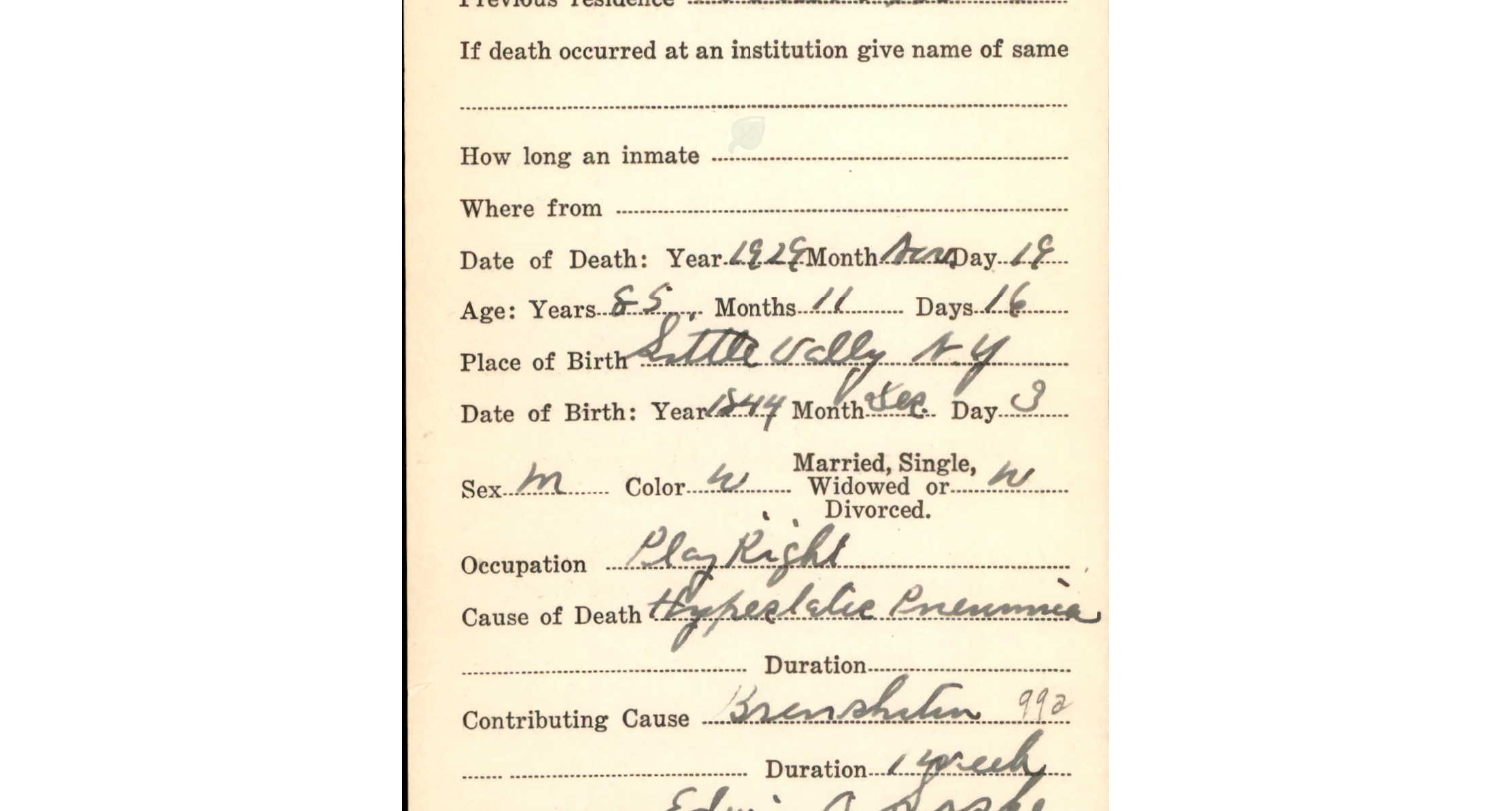 Previous residence
If death occurred at an institution give name of same
How long an inmate
Where from
Date of Death: Year 1929 Month Nov Day 19
Age: Years 85 Months 11 Days 16
Place of Birth Little Vally N.Y
Date of Birth: Year 1844 Month Dec. Day 3
Married, Single,
Sex M Color W Widowed or W
Divorced.
Occupation Play Right
Cause of Death Hypostatic Pneumnia
Duration
Contributing Cause 99a
Duration 1 week
Edwin A